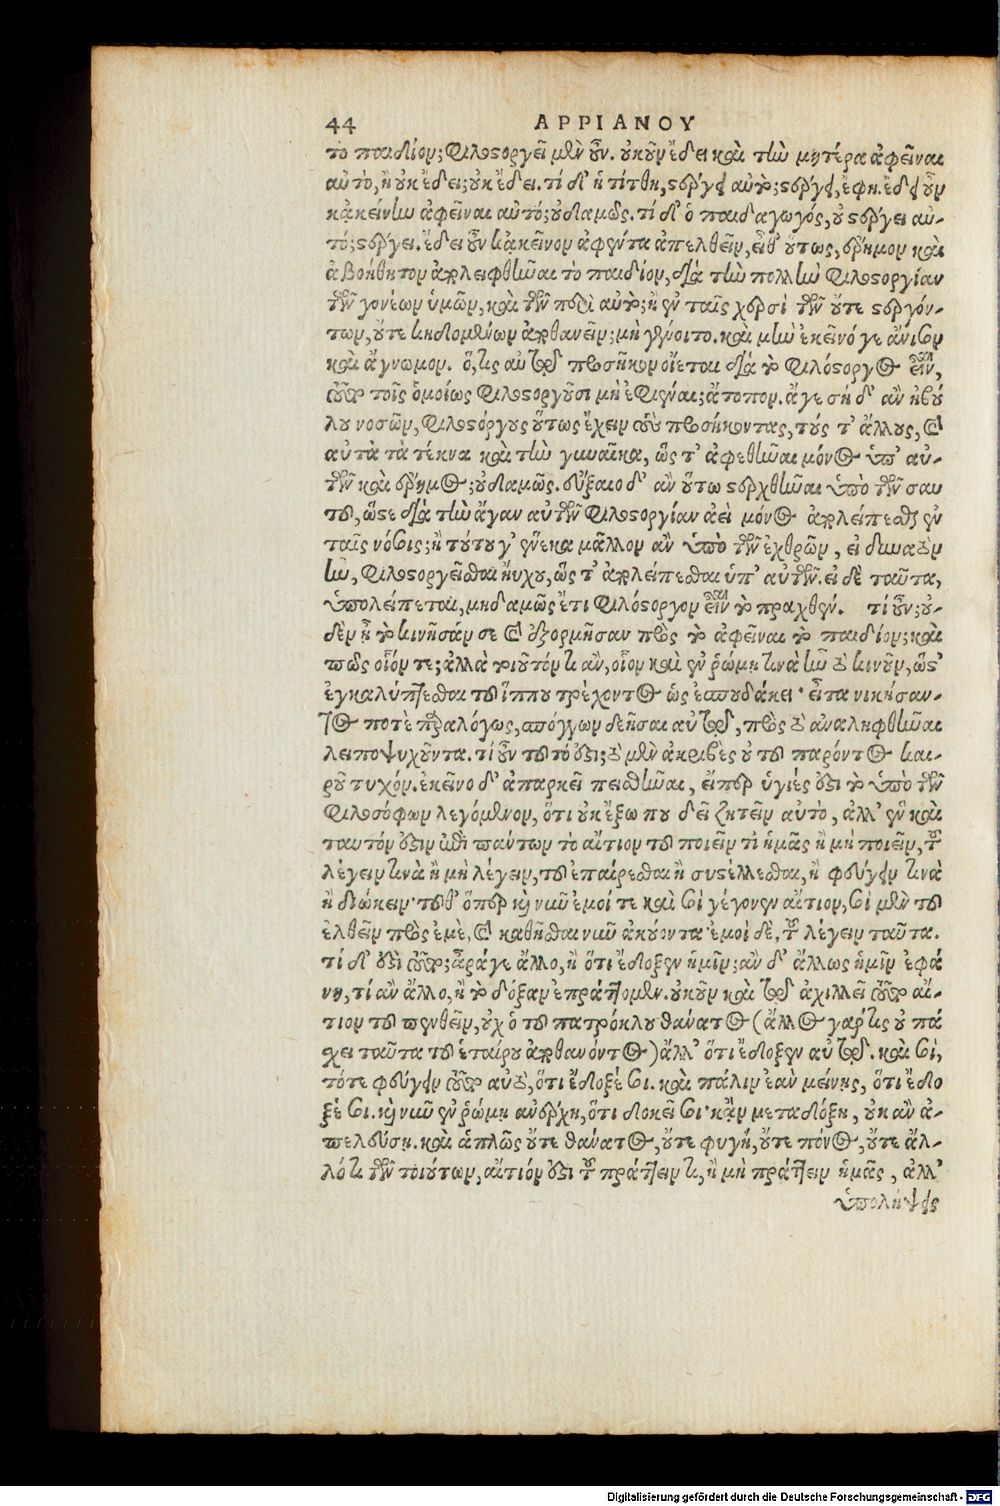 44 ΑΡΡΙΑΝΟΥ
τὸ παιδίον; φιλοστοργεῖ μὲν οὖν. οὐκοῦν ἔδει καὶ τὴν μητέρα ἀφεῖναι
αὐτὸ, ἢ οὐκ ἔδει; οὐκ ἔδει. τί δ' ἡ τίτθη, στέργει αὐτό; στέργει, ἔφη. ἔδει οὖν
κἀκείνην ἀφεῖναι αὐτό; οὐδαμῶς. τί δ' ὁ παιδαγωγός, οὐ στέργει αὐ-
τό; στέργει. ἔδει οὖν κἀκεῖνον ἀφέντα ἀπελθεῖν, εἶθ' οὕτως, ἔρημον καὶ
ἀβοήθητον ἀπολειφθῆναι τὸ παιδίον, διὰ τὴν πολλὴν φιλοστοργίαν
τῶν γονέων ὑμῶν, καὶ τῶν περὶ αὐτό; ἢ ἐν ταῖς χερσὶ τῶν οὔτε στεργόν-
των, οὔτε κηδομένων ἀποθανεῖν; μὴ γένοιτο. καὶ μὴν ἐκεῖνό γε ἄνισον
καὶ ἄγνωμον. ὅ, τις αὐτῷ προσῆκον οἴεται διὰ τὸ φιλόστοργος εἶναι,
τοῦτο τοῖς ὁμοίως φιλοστοργοῦσι μὴ ἐφιέναι; ἄτοπον. ἄγε σὴ δ' ἂν ἠβού
λου νοσῶν, φιλοστόργους οὕτως ἔχειν τοὺς προσήκοντας, τούς τ' ἄλλους, καὶ
αὐτὰ τὰ τέκνα καὶ τὴν γυναῖκα, ὥς τ' ἀφεθῆναι μόνος ὑπ' αὐ-
τῶν καὶ ἔρημος; οὐδαμῶς. εὔξαιο δ' ἂν οὕτω στερχθῆναι ὑπὸ τῶν σαυ
τοῦ, ὥστε διὰ τὴν ἄγαν αὐτῶν φιλοστοργίαν ἀεὶ μόνος ἀπολείπεσθαι ἐν
ταῖς νόσοις; ἢ τούτου γ' ἕνεκα μᾶλλον ἂν ὑπὸ τῶν ἐχθρῶν, εἰ δυνατὸν
ἦν, φιλοστοργεῖσθαι ηὔχου, ὥς τ' ἀπολείπεσθαι ὑπ' αὐτῶν. εἰ δὲ ταῦτα,
ὑπολείπεται, μηδαμῶς ἔτι φιλόστοργον εἶναι τὸ πραχθέν. τί οὖν; οὐ-
δὲν ἦν τὸ κινῆσάν σε καὶ ἐξορμῆσαν πρὸς τὸ ἀφεῖναι τὸ παιδίον; καὶ
πῶς οἷόν τε; ἀλλὰ τοιοῦτόν τι ἂν, οἷον καὶ ἐν ῥώμῃ τινὰ ἦν τὸ κινοῦν, ὥστ'
ἐγκαλύπτεσθαι τοῦ ἵππου τρέχοντος ὡς ἐσπουδάκει· εἶτα νικήσαν-
τος ποτὲ παραλόγως, σπόγγων δεῆσαι αὐτῷ, πρὸς τὸ ἀναληφθῆναι
λειποψυχοῦντα. τί οὖν τοῦτό ἐστι; τὸ μὲν ἀκριβὲς οὐ τοῦ παρόντος και-
ροῦ τυχόν. ἐκεῖνο δ' ἀπαρκεῖ πεισθῆναι, εἴπερ ὑγιές ἐστι τὸ ὑπὸ τῶν
φιλοσόφων λεγόμενον, ὅτι οὐκ ἔξω που δεῖ ζητεῖν αὐτὸ, ἀλλ' ἓν καὶ
ταυτόν ἐστιν ἐπὶ πάντων τὸ αἴτιον τοῦ ποιεῖν τὶ ἡμᾶς ἢ μὴ ποιεῖν, τοῦ
λέγειν τινὰ ἢ μὴ λέγειν, τοῦ ἐπαίρεσθαι ἢ συστέλλεσθαι, ἢ φεύγειν τινὰ
ἢ διώκειν· τοῦθ' ὅπερ καὶ νῦν ἐμοί τε καὶ σοὶ γέγονεν αἴτιον, σοὶ μὲν τοῦ
ἐλθεῖν πρὸς ἐμὲ, καὶ καθῆσθαι νῦν ἀκούοντα· ἐμοὶ δὲ, τοῦ λέγειν ταῦτα.
τί δ' ἐστὶ τοῦτο; ἆρά γε ἄλλο, ἢ ὅτι ἔδοξεν ἡμῖν; ἂν δ' ἄλλως ἡμῖν ἐφά
νη, τί ἂν ἄλλο, ἢ τὸ δόξαν ἐπράττομεν. οὐκοῦν καὶ τῷ ἀχιλλεῖ τοῦτο αἴ-
τιον τοῦ πενθεῖν, οὐχ ὁ τοῦ πατρόκλου θάνατος (ἄλλος γάρ τις οὐ πά
σχει ταῦτα τοῦ ἑταίρου ἀποθανόντος) ἄλλ' ὅτι ἔδοξεν αὐτῷ. καὶ σοὶ,
τότε φεύγειν τοῦτο αὐτὸ, ὅτι ἔδοξέ σοι. καὶ πάλιν ἐὰν μείνῃς, ὅτι ἔδο
ξέ σοι. καὶ νῦν ἐν ῥώμῃ ἀνέρχῃ, ὅτι δοκεῖ σοι· κἂν μεταδόξῃ, οὐκ ἂν ἀ-
πελεύσῃ. καὶ ἁπλῶς οὔτε θάνατος, οὔτε φυγή, οὔτε πόνος, οὔτε ἄλ-
λό τι τῶν τοιούτων, αἴτιόν ἐστι τοῦ πράττειν τι, ἢ μὴ πράττειν ἡμᾶς, ἀλλ'
ὑπολήψεις
Digitalisierung gefördert durch die Deutsche Forschungsgemeinschaft - DFG